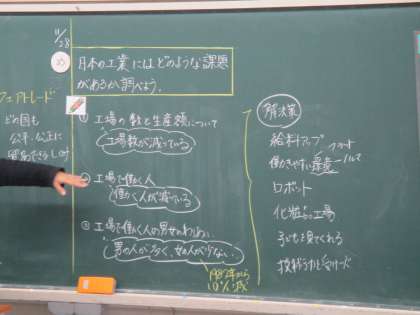 11/28
め
日本の工業にはどのような課題
があるか調べよう.
フェアトレード
どの国も
公平、公正に
① 工場の数と生産額について
工場数が減っている
② 工場で働く人
働く人が減っている
③ 工場で働く人の男女のわりあい
男の人が多く、女の人が少ない.
10%減
解決策
給料アップ
働きやすい環境
ロボット
化粧品工場
子どもを見てくれる